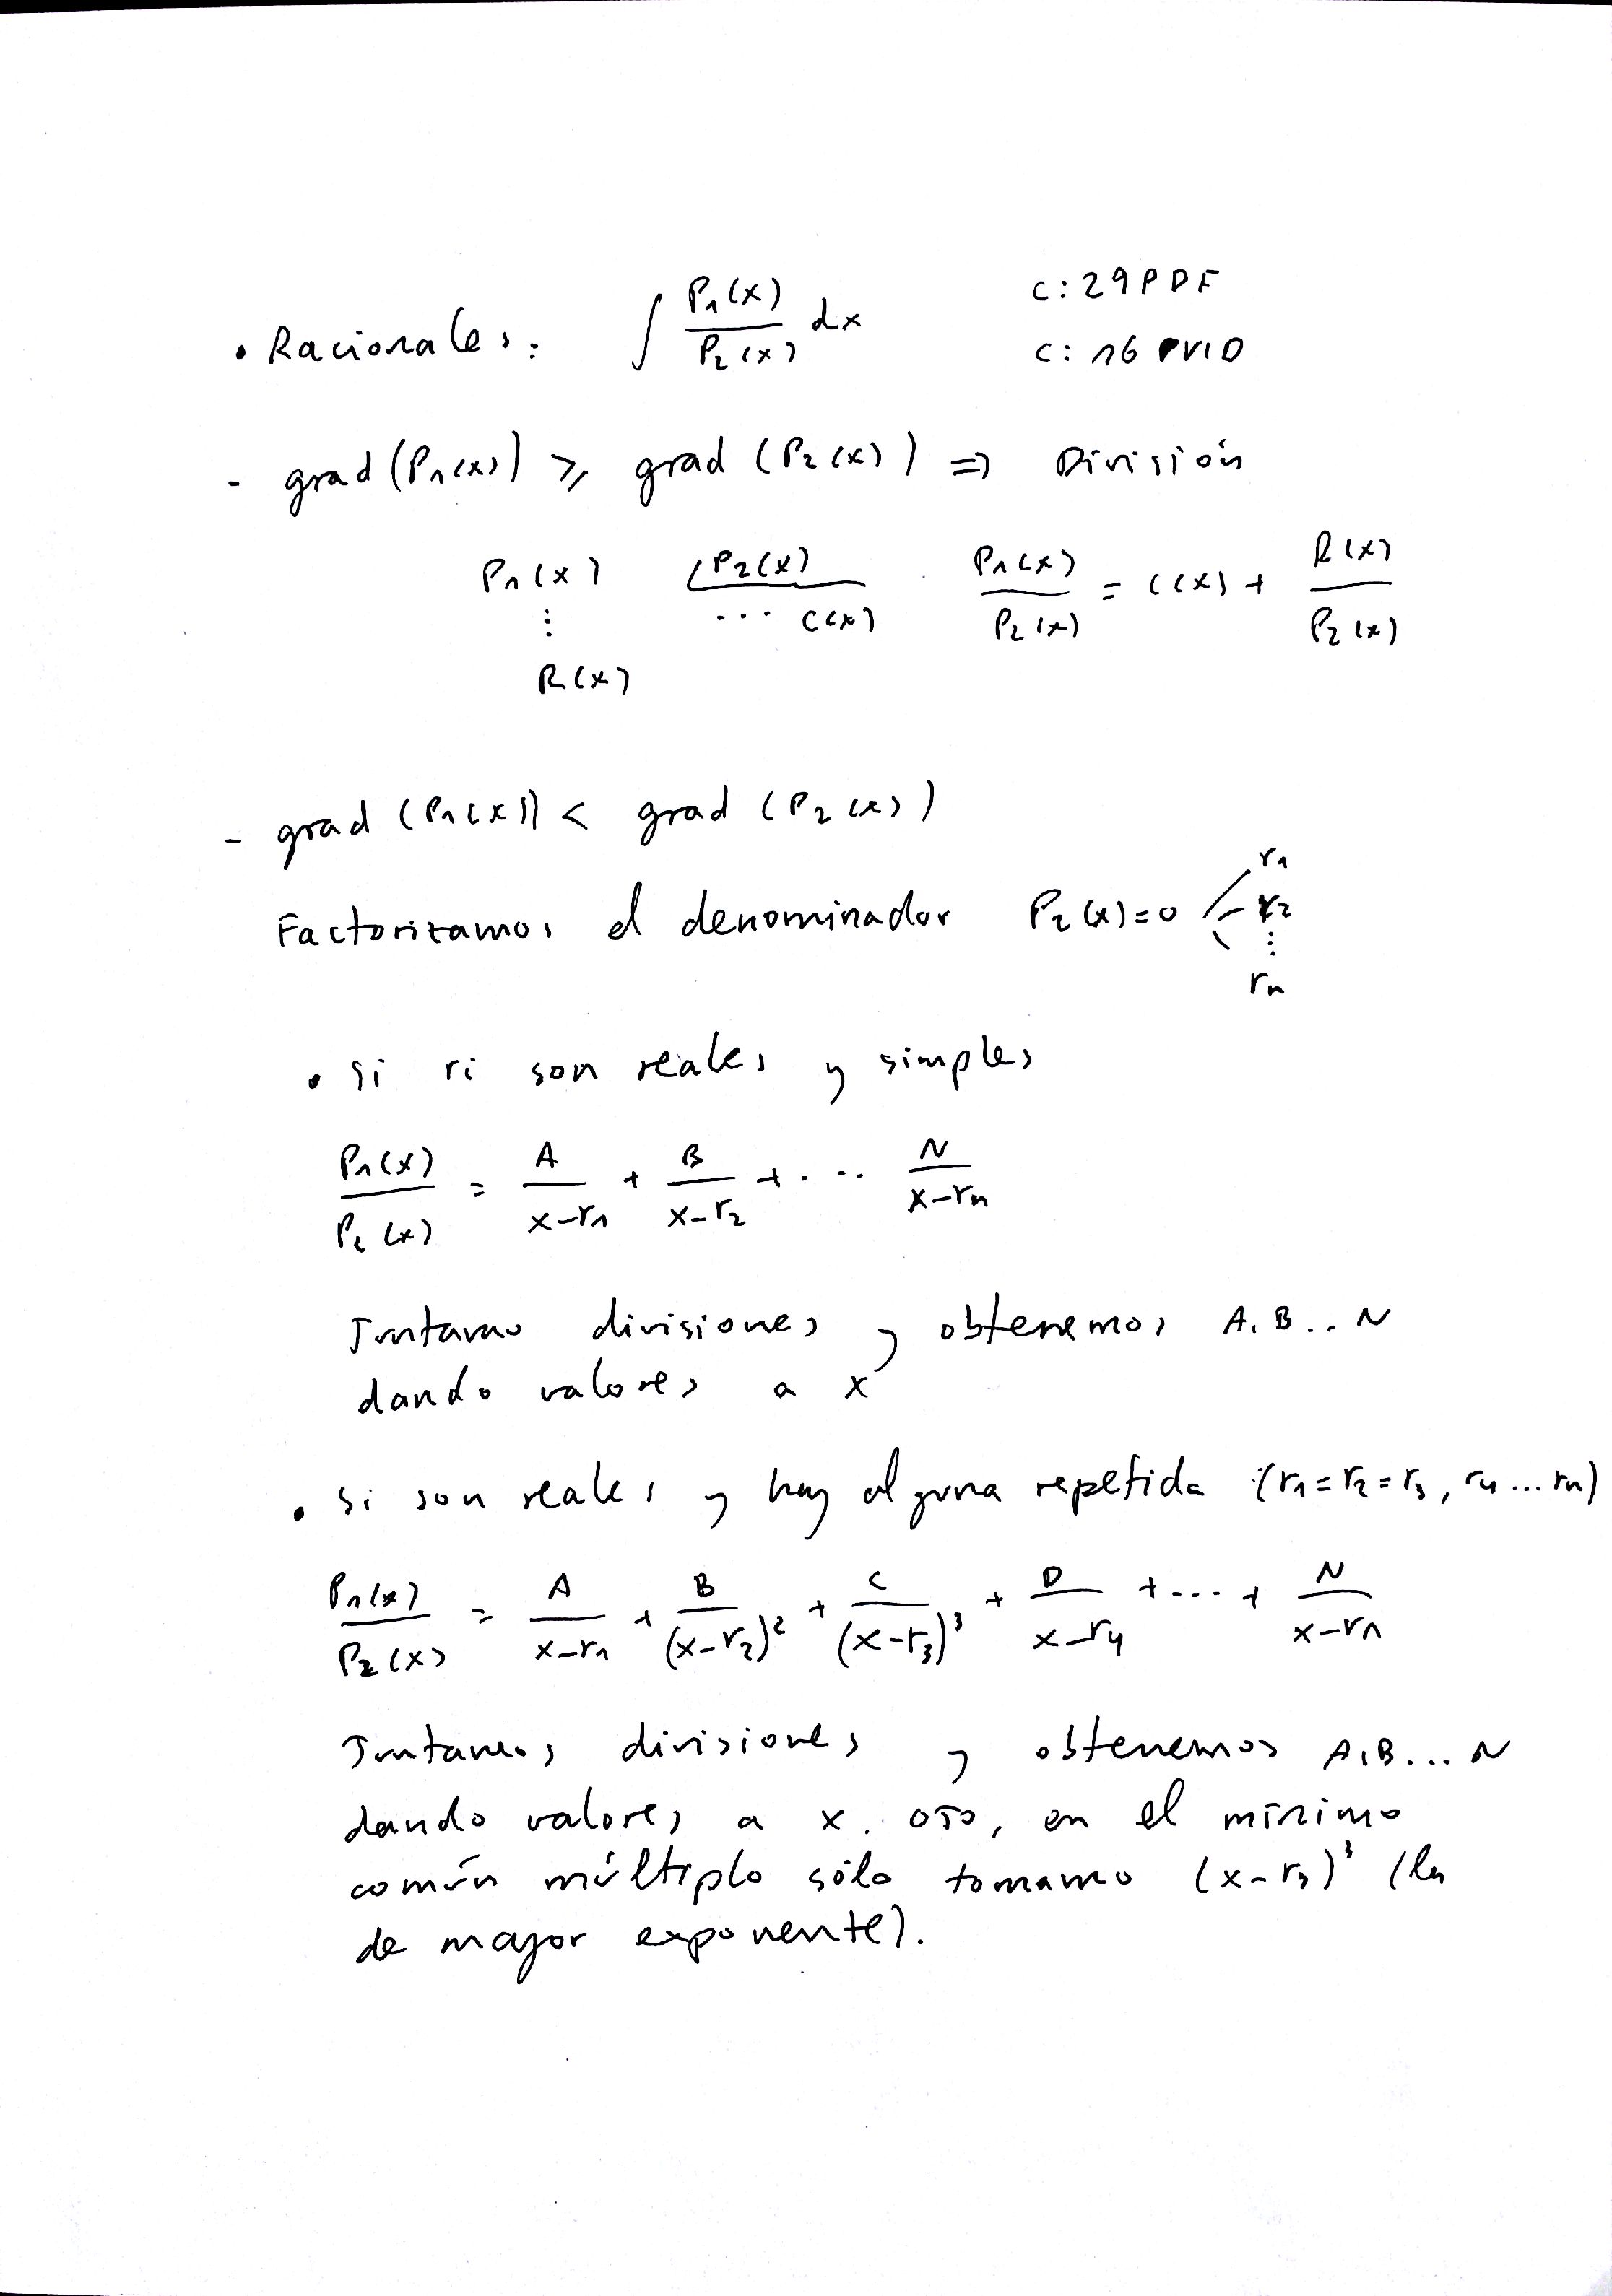 • Racionales: ∫ P₁(x)/P₂(x) dx    C: 29 PDF
C: 16 PVID
- grad (P₁(x)) ≥ grad (P₂(x)) ⇒ División
P₁(x) | P₂(x)    P₁(x)/P₂(x) = C(x) + R(x)/P₂(x)
⋮ ... C(x)
R(x)
- grad (P₁(x)) < grad (P₂(x))
Factorizamos el denominador P₂(x)=0 r₁
r₂
⋮
rₙ
• Si ri son reales y simples
P₁(x)/P₂(x) = A/(x-r₁) + B/(x-r₂) + ... N/(x-rₙ)
Juntamo divisiones y obtenemos A, B .. N
dando valores a x
• Si son reales y hay alguna repetida (r₁=r₂=r₃, r₄...rₙ)
P₁(x)/P₂(x) = A/(x-r₁) + B/(x-r₂)² + C/(x-r₃)³ + D/(x-r₄) + .... + N/(x-rₙ)
Juntamos divisiones y obtenemos A, B ... N
dando valores a x. OJO, en el mínimo
común múltiplo sólo tomamo (x-r₃)³ (la
de mayor exponente).